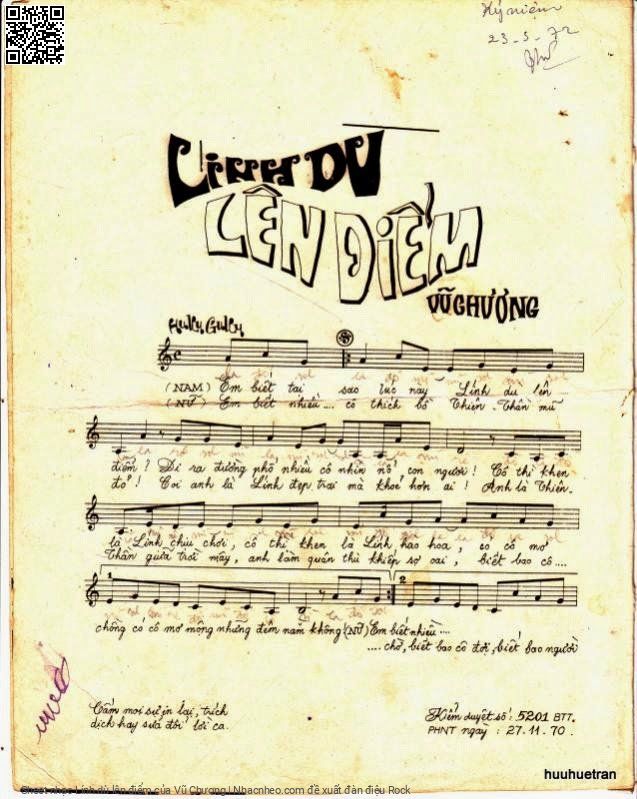 Kỷ niệm
23-5-72
LÍNH DÙ
LÊN ĐIỂM
VŨ CHƯƠNG
Hully Gully
(NAM) Em biết tại sao lúc này Lính dù lên
(NỮ) Em biết nhiều... cô thích bồ Thiên Thần mũ
điểm? Đi ra đường phố nhiều cô nhìn nổ con người! Cô thì khen
đỏ! Coi anh là Lính đẹp trai mà khoẻ hơn ai! Anh là Thiên
là Lính chịu chơi, cô thì khen là Lính hào hoa, có cô mơ
Thần giữa trời mây, anh làm quân thù khiếp sợ oai, biết bao cô....
1 2
chồng có cô mơ mộng những đêm nằm không (NỮ) Em biết nhiều....
....chờ, biết bao cô đợi, biết bao người
Cấm mọi sự in lại, trích
dịch hay sửa đổi lời ca.
Kiểm duyệt số: 5201 BTT.
PHNT ngày: 27.11.70.
huuhuetran
Sheet nhạc Lính dù lên điểm của Vũ Chương | Nhacnheo.com đề xuất đàn điệu Rock